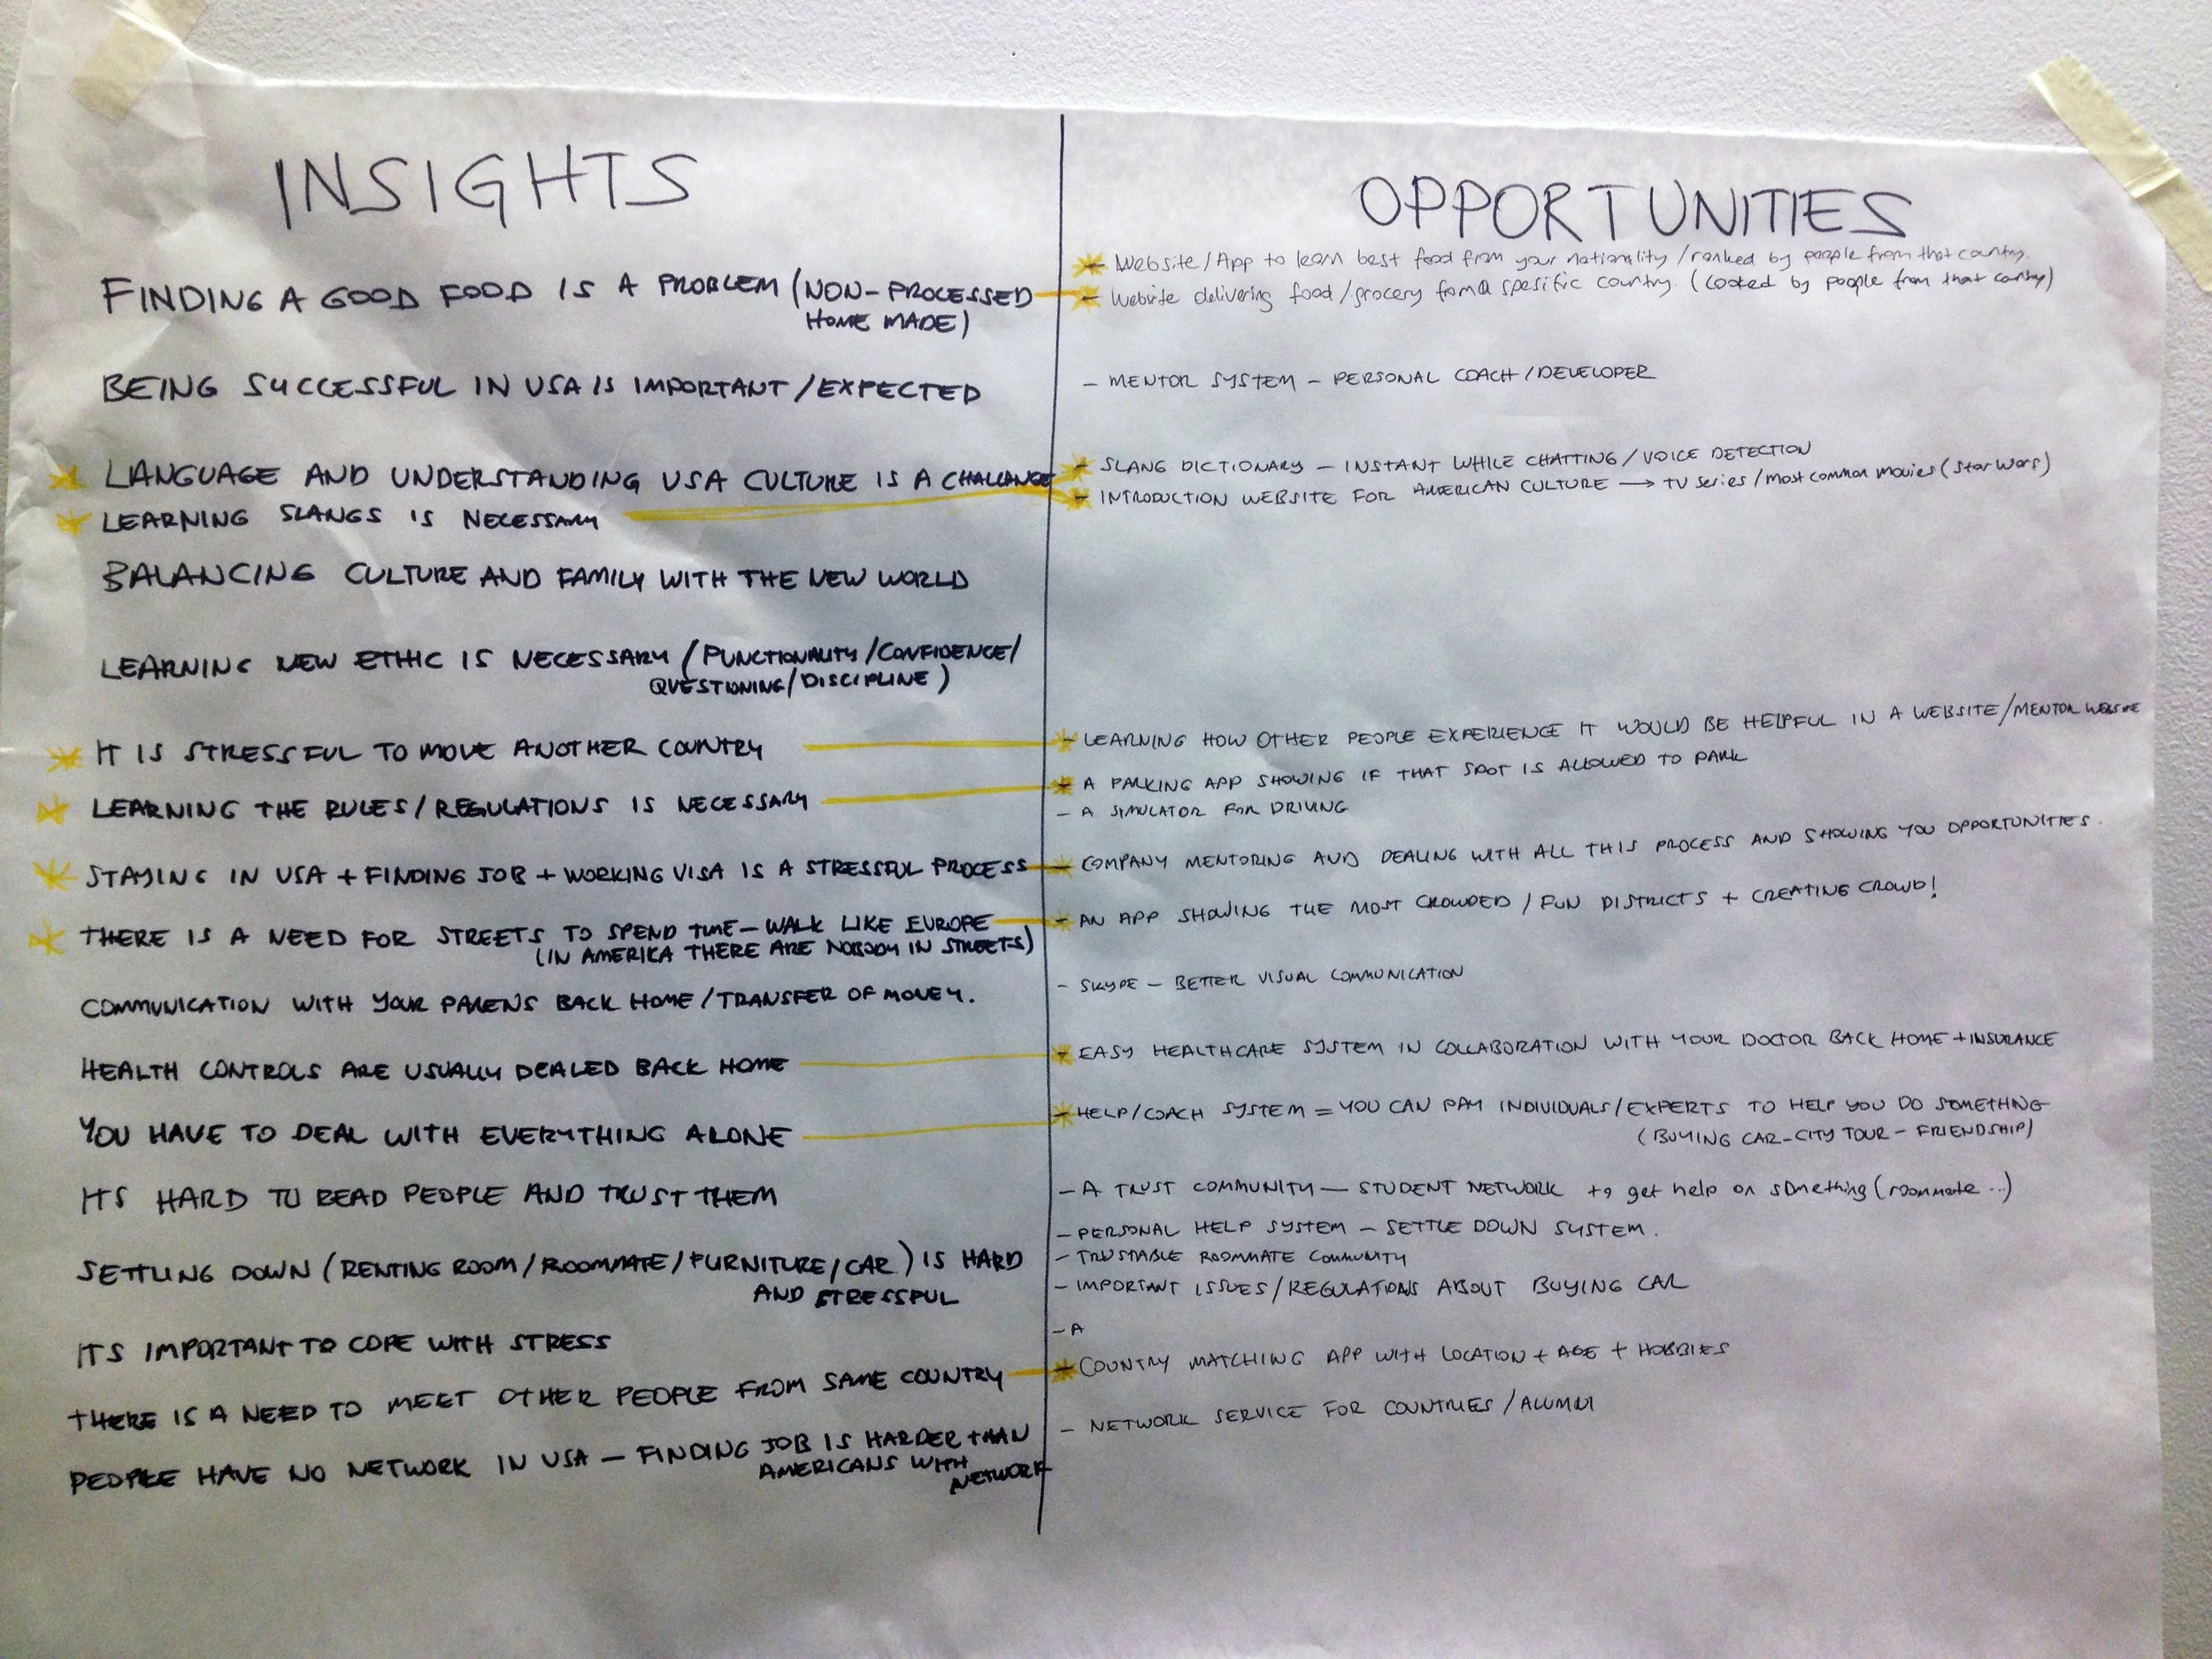 INSIGHTS
FINDING A GOOD FOOD IS A PROBLEM (NON-PROCESSED
HOME MADE)
BEING SUCCESSFUL IN USA IS IMPORTANT / EXPECTED
LANGUAGE AND UNDERSTANDING USA CULTURE IS A CHALLANGE
LEARNING SLANGS IS NECESSARY
BALANCING CULTURE AND FAMILY WITH THE NEW WORLD
LEARNING NEW ETHIC IS NECESSARY (PUNCTIONALITY / CONFIDENCE/
QUESTIONING/DISCIPLINE)
IT IS STRESSFUL TO MOVE ANOTHER COUNTRY
LEARNING THE RULES/REGULATIONS IS NECESSARY
STAYING IN USA + FINDING JOB + WORKING VISA IS A STRESSFUL PROCESS
THERE IS A NEED FOR STREETS TO SPEND TIME - WALK LIKE EUROPE
(IN AMERIKA THERE ARE NOBODY IN STREETS)
COMMUNICATION WITH YOUR PARENS BACK HOME / TRANSFER OF MONEY.
HEALTH CONTROLS ARE USUALLY DEALED BACK HOME
YOU HAVE TO DEAL WITH EVERYTHING ALONE
ITS HARD TO READ PEOPLE AND TRUST THEM
SETTLING DOWN (RENTING ROOM / ROOMMATE / FURNITURE / CAR) IS HARD
AND STRESSFUL
ITS IMPORTANT TO COPE WITH STRESS
THERE IS A NEED TO MEET OTHER PEOPLE FROM SAME COUNTRY
PEOPLE HAVE NO NETWORK IN USA - FINDING JOB IS HARDER THAN
AMERICANS WITH
NETWORK
OPPORTUNITIES
- Website / App to learn best food from your nationality / ranked by people from that country.
- Website delivering food / grocery from a spesific country. (cooked by people from that contry)
- MENTOR SYSTEM - PERSONAL COACH / DEVELOPER
- SLANG DICTIONARY - INSTANT WHILE CHATTING / VOICE DETECTION
- INTRODUCTION WEBSITE FOR AMERICAN CULTURE → TV series / most common movies (Star Wars)
- LEARNING HOW OTHER PEOPLE EXPERIENCE IT WOULD BE HELPFUL IN A WEBSITE / MENTOR WEBSITE
- A PARKING APP SHOWING IF THAT SPOT IS ALLOWED TO PARK
- A SIMULATOR FOR DRIVING
- COMPANY MENTORING AND DEALING WITH ALL THIS PROCESS AND SHOWING YOU OPPORTUNITIES.
- AN APP SHOWING THE MOST CROWDED / FUN DISTRICTS + CREATING CROWD!
- SKYPE - BETTER VISUAL COMMUNICATION
- EASY HEALTHCARE SYSTEM IN COLLABORATION WITH YOUR DOCTOR BACK HOME + INSURANCE
- HELP / COACH SYSTEM = YOU CAN PAY INDIVIDUALS / EXPERTS TO HELP YOU DO SOMETHING
(BUYING CAR - CITY TOUR - FRIENDSHIP)
- A TRUST COMMUNITY - STUDENT NETWORK to get help on something (roommate ...)
- PERSONAL HELP SYSTEM - SETTLE DOWN SYSTEM.
- TRUSTABLE ROOMMATE COMMUNITY
- IMPORTANT ISSUES / REGULATIONS ABOUT BUYING CAR
- A
- COUNTRY MATCHING APP WITH LOCATION + AGE + HOBBIES
- NETWORK SERVICE FOR COUNTRIES / ALUMNI